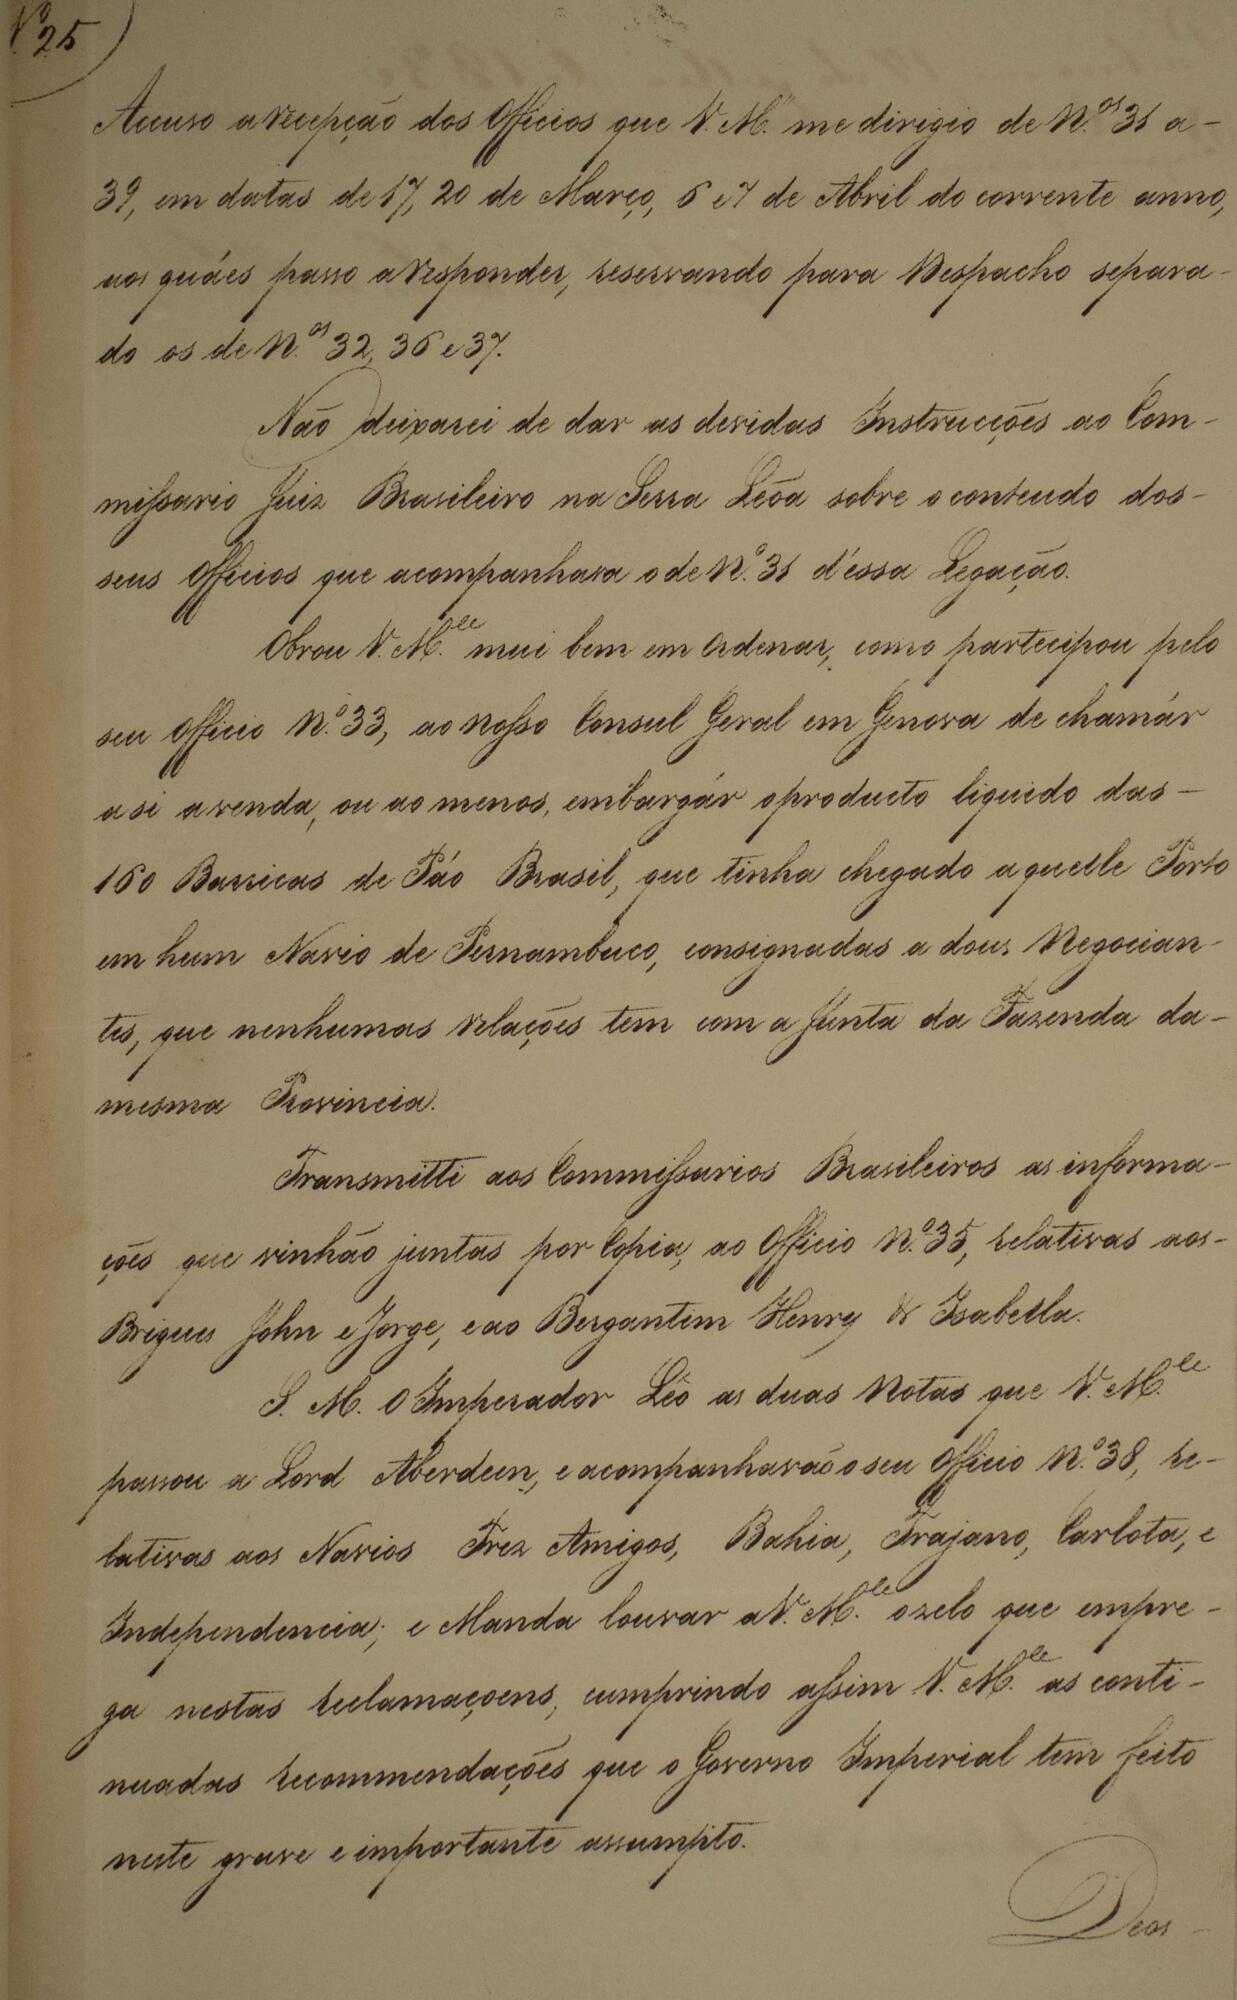 Nº 25
Accuso a recepção dos Officios que V. M.ce me dirigio de N.os 31 a-
39, em datas de 17, 20 de Março, 6 e 7 de Abril do corrente anno,
aos quáes passo a responder, reservando para Despacho separa-
do os de N.os 32, 36 e 37.
Não deixarei de dar as devidas Instrucções ao Com-
missario Juiz Brasileiro na Serra Leôa sobre o conteudo dos-
seus Officios que acompanhara o de N.º 31 d'éssa Legação.
Obrou V. M.ce mui bem em ordenar, como partecipou pelo
seu Officio N.º 33, ao nosso Consul Geral em Genova de chamár
a si a venda, ou ao menos, embargár o producto liquido das-
160 Barricas de Páo Brasil, que tinha chegado a quelle Porto
em hum Navio de Pernambuco, consignadas a dous Negocian-
tes, que nenhumas relações tem com a Junta da Fazenda da-
mesma Provincia.
Transmitti aos Commissarios Brasileiros as informa-
ções que vinhão juntas por Copia, ao Officio N.º 35, relativas aos-
Brigues John e Jorge, e ao Bergantim Henry & Isabella.
S. M. O Imperador Lêo as duas Notas que V. M.ce
passou a Lord Aberdeen, e acompanharão o seu Officio N.º 38, re-
lativas aos Navios Trez Amigos, Bahia, Trajano, Carlota, e
Independencia; e Manda louvar a V. M.ce o zelo que empre-
ga nestas reclamaçoens, cumprindo assim V. M.ce as conti-
nuadas recommendações que o Governo Imperial tem feito
neste grave e importante assumpto.
Deos-